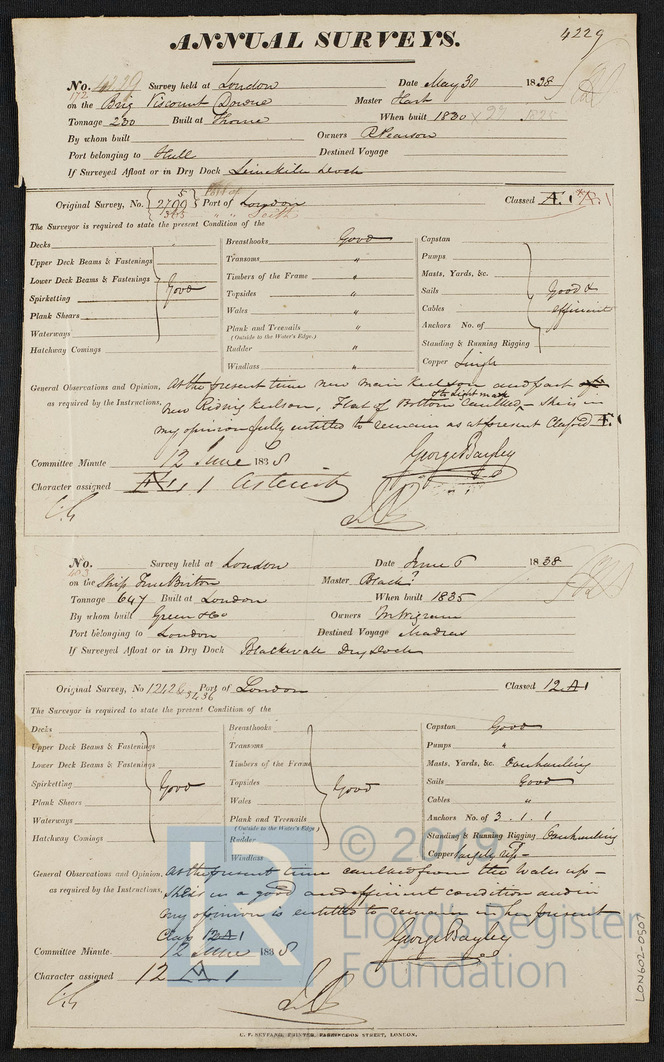 4229
ANNUAL SURVEYS.
No. 4229 Survey held at London Date May 30 1838
172
on the Brig Viscount Downe Master Hart
Tonnage 200 Built at Thorne When built 1800
By whom built Owners R Pearson
Port belonging to Hull Destined Voyage
If Surveyed Afloat or in Dry Dock Limekiln Dock
Original Survey, No. Port of London Classed A 1 * A. 1
Port of
" " Leith
The Surveyor is required to state the present Condition of the
Decks
Upper Deck Beams & Fastenings
Lower Deck Beams & Fastenings
Spirketting
Plank Shears
Waterways
Hatchway Comings
Good
Breasthooks Good
Transoms "
Timbers of the Frame "
Topsides "
Wales "
Plank and Treenails "
(Outside to the Water's Edge.)
Rudder "
Windlass "
Capstan
Pumps
Masts, Yards, &c.
Sails
Cables
Anchors No. of
Standing & Running Rigging
Good & efficient
Copper Single
General Observations and Opinion, At the present time new main keelson and part of
as required by the Instructions, new Riding keelson, Flat of Bottom to light mark Caulked - She is in
my opinion fully entitled to remain as at present Classed Æ 1
George Bayley
Committee Minute 12 June 1838
Character assigned Æ 1 Asterisk
No. Survey held at London Date June 6 1838
403
on the Ship True Briton Master Beach
Tonnage 647 Built at London When built 1835
By whom built Green & Co Owners M Wigram
Port belonging to London Destined Voyage Madras
If Surveyed Afloat or in Dry Dock Blackwall Dry Dock
Original Survey, No 12426 Port of London Classed 12 A 1
3436
The Surveyor is required to state the present Condition of the
Decks
Upper Deck Beams & Fastenings
Lower Deck Beams & Fastenings
Spirketting
Plank Shears
Waterways
Hatchway Comings
Good
Breasthooks
Transoms
Timbers of the Frame
Topsides
Wales
Plank and Treenails
(Outside to the Water's Edge)
Rudder
Windlass
Good
Capstan Good
Pumps "
Masts, Yards, &c. Overhauling
Sails Good
Cables "
Anchors No. of 3. 1. 1
Standing & Running Rigging Overhauling
Copper largely rep-
General Observations and Opinion, At the present time caulked from the Wales up -
as required by the Instructions, She is in a good and efficient condition and in
my opinion is entitled to remain in her present
Class 12 A 1
George Bayley
Committee Minute 12 June 1838
Character assigned 12 A 1
C. F. SEYFANG, PRINTER, FARRINGDON STREET, LONDON.
© 2019
Lloyd's Register
Foundation
LR
LON602-0507